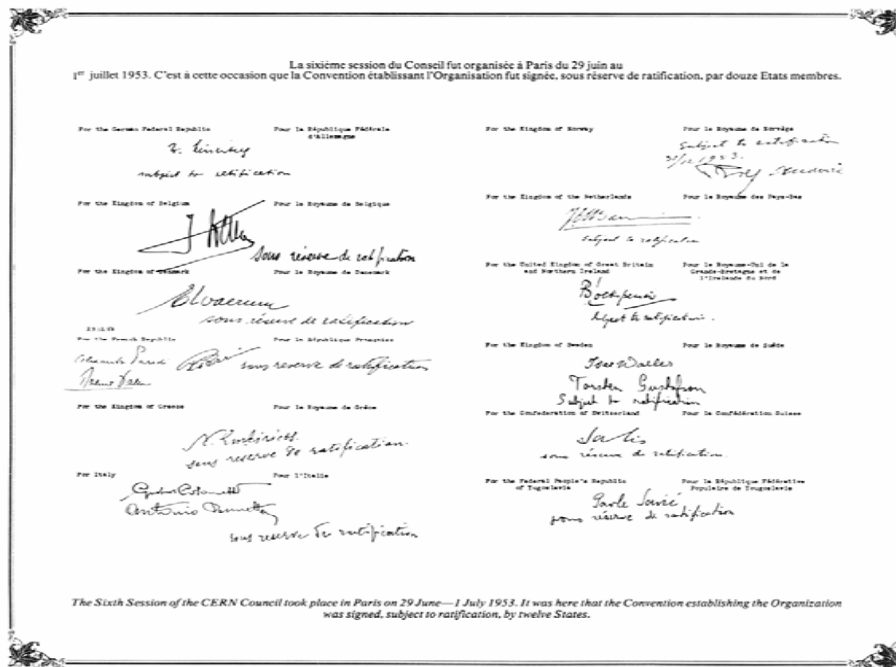 La sixième session du Conseil fut organisée à Paris du 29 juin au
1er juillet 1953. C'est à cette occasion que la Convention établissant l'Organisation fut signée, sous réserve de ratification, par douze Etats membres.
For the German Federal Republic
Pour la République Fédérale
d'Allemagne
subject to ratification
For the Kingdom of Belgium
Pour le Royaume de Belgique
sous réserve de ratification
For the Kingdom of Denmark
Pour le Royaume de Danemark
sous réserve de ratification
For the French Republic
Pour la République Française
sous reserve de ratification
For the Kingdom of Greece
Pour le Royaume de Grèce
sous reserve de ratification.
For Italy
Pour l'Italie
Antonio
sous reserve de ratification
For the Kingdom of Norway
Pour le Royaume de Norvège
Subject to ratification
1953.
For the Kingdom of the Netherlands
Pour le Royaume des Pays-Bas
subject to ratification
For the United Kingdom of Great Britain
and Northern Ireland
Pour le Royaume-Uni de la
Grande-Bretagne et de
l'Irelande du Nord
Subject to ratification.
For the Kingdom of Sweden
Pour le Royaume de Suède
Torsten Gustafson
Subject to ratification
For the Confederation of Switzerland
Pour la Confédération Suisse
sous réserve de ratification.
For the Federal People's Republic
of Yugoslavia
Pour la République Fédérative
Populaire de Yougoslavie
Pavle Savić
sous réserve de ratification
The Sixth Session of the CERN Council took place in Paris on 29 June—1 July 1953. It was here that the Convention establishing the Organization
was signed, subject to ratification, by twelve States.